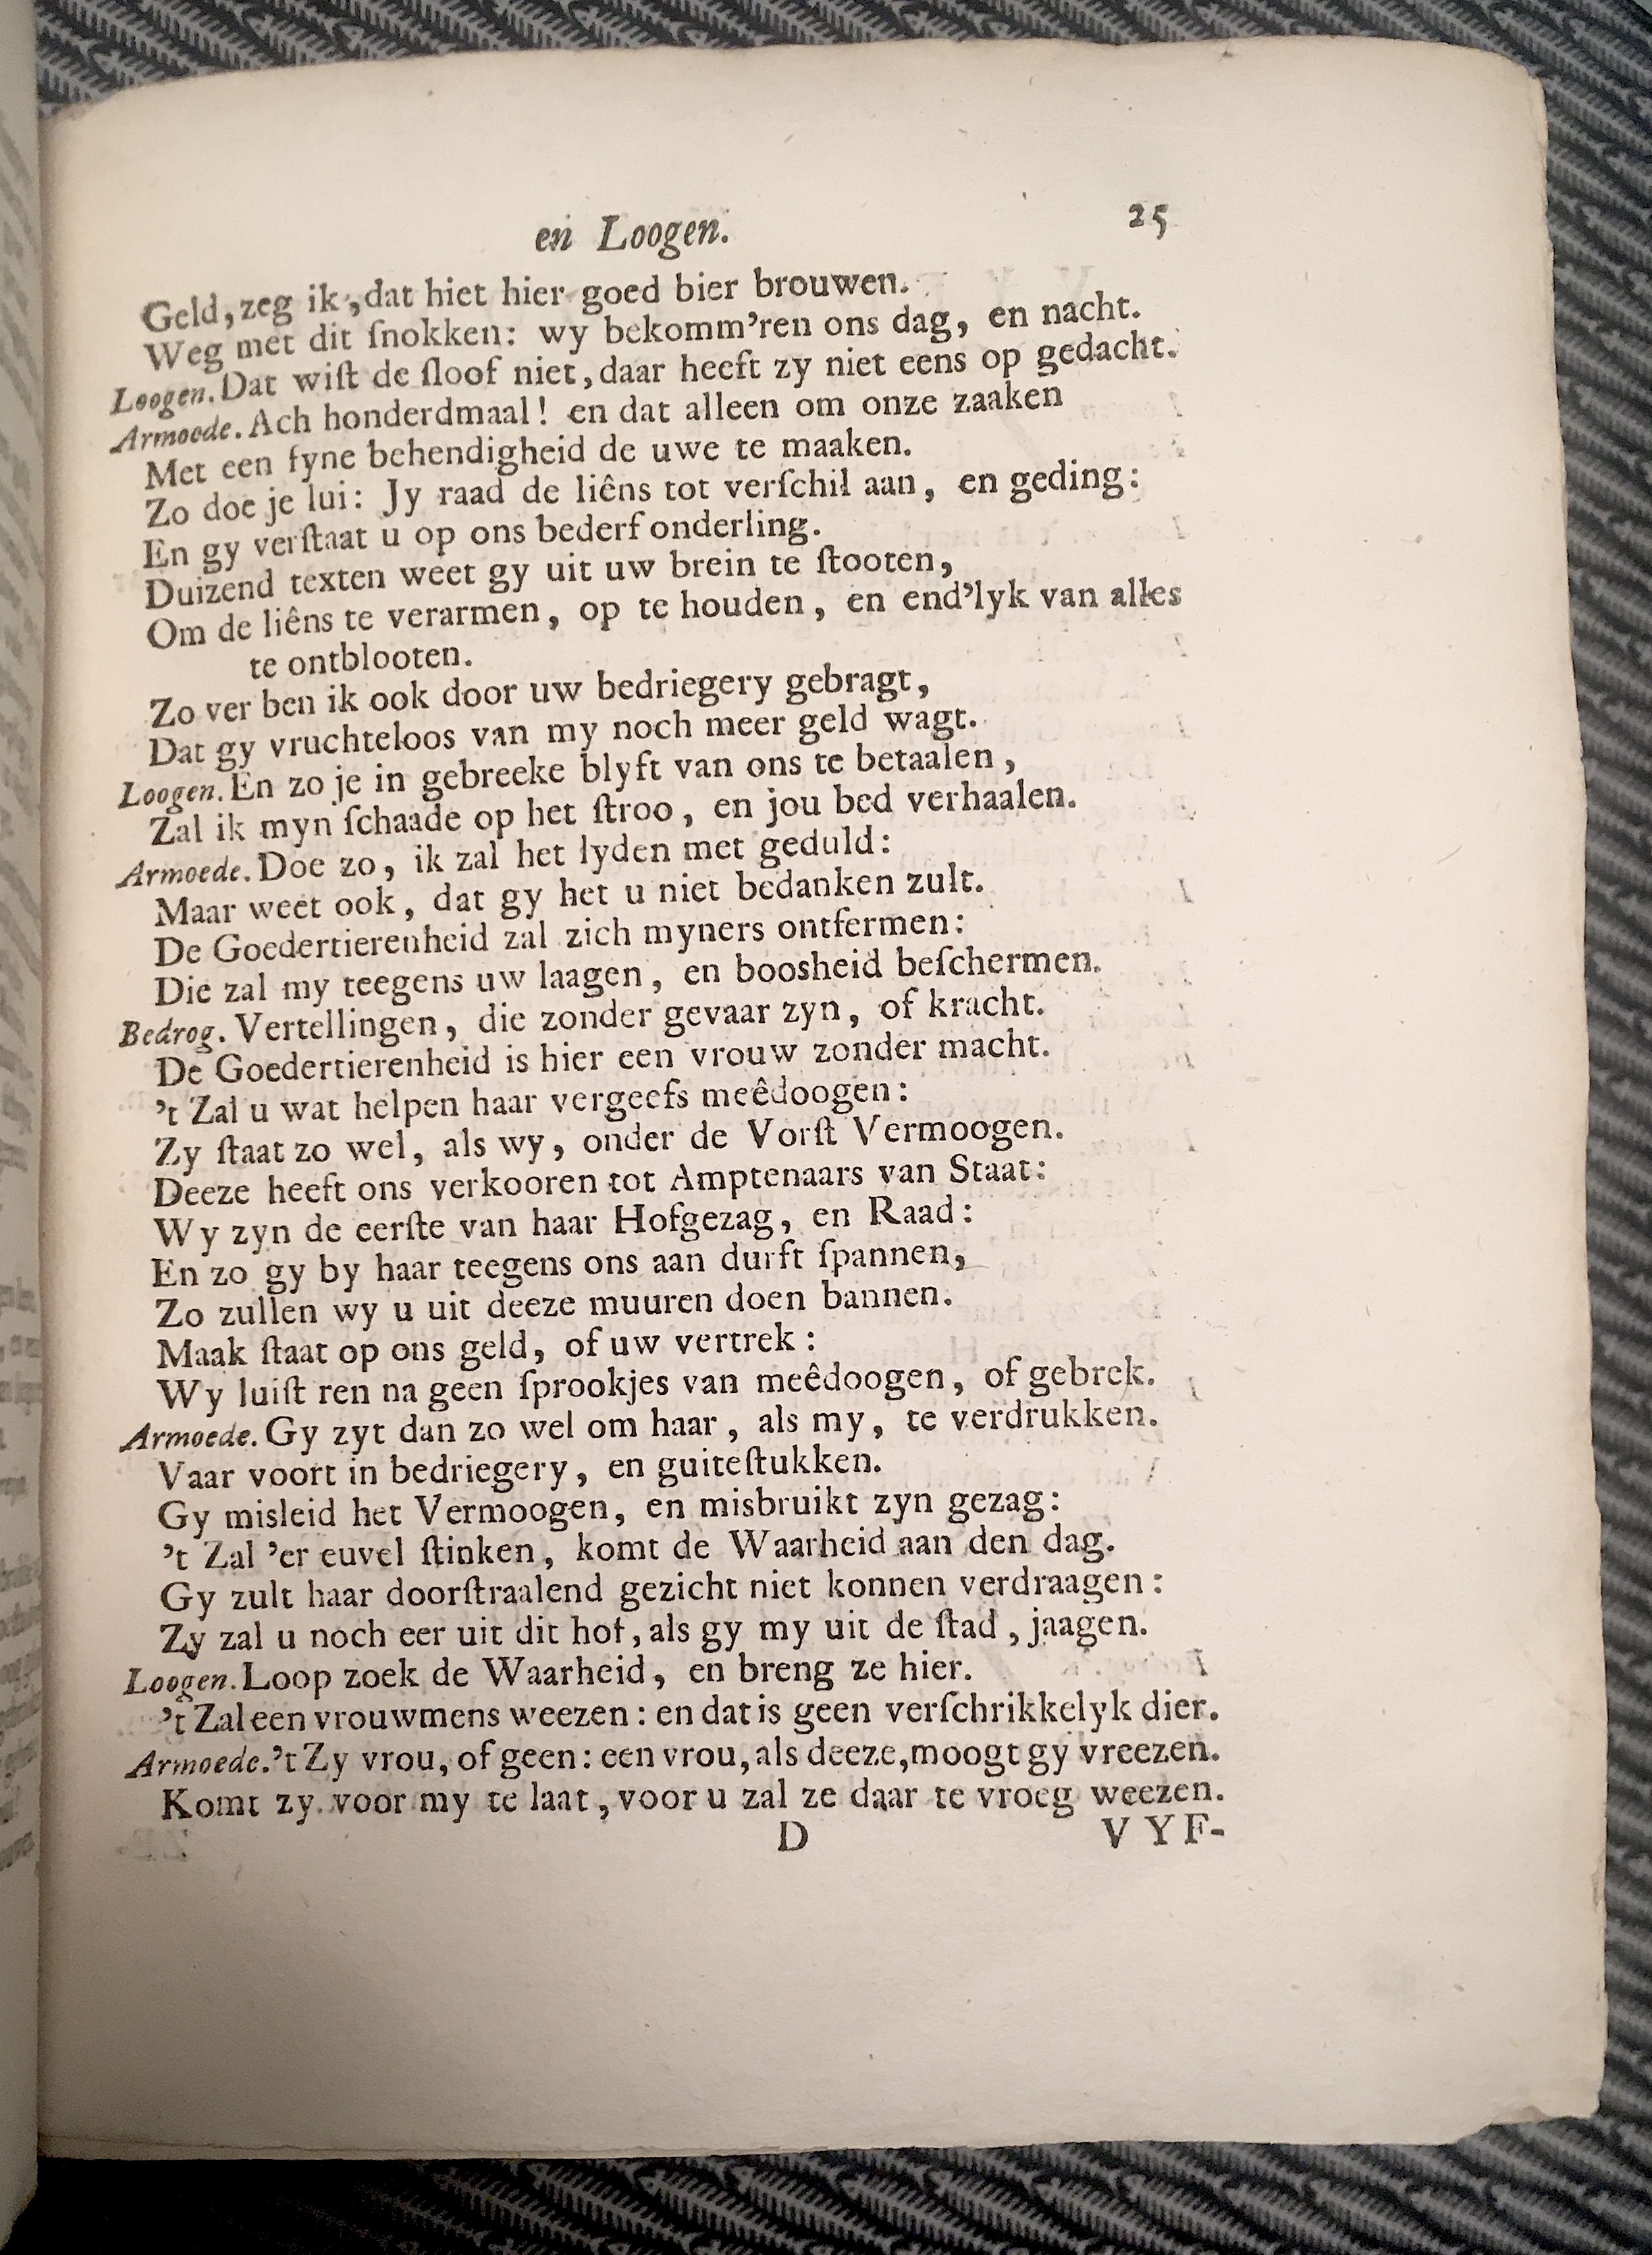 en Loogen. 25
Geld, zeg ik, dat hiet hier goed bier brouwen.
Weg met dit ſnokken: wy bekomm'ren ons dag, en nacht.
Loogen. Dat wiſt de ſloof niet, daar heeft zy niet eens op gedacht.
Armoede. Ach honderdmaal! en dat alleen om onze zaaken
Met een fyne behendigheid de uwe te maaken.
Zo doe je lui: Jy raad de liêns tot verſchil aan, en geding:
En gy verſtaat u op ons bederf onderling.
Duizend texten weet gy uit uw brein te ſtooten,
Om de liêns te verarmen, op te houden, en end'lyk van alles
te ontblooten.
Zo ver ben ik ook door uw bedriegery gebragt,
Dat gy vruchteloos van my noch meer geld wagt.
Loogen. En zo je in gebreeke blyft van ons te betaalen,
Zal ik myn ſchaade op het ſtroo, en jou bed verhaalen.
Armoede. Doe zo, ik zal het lyden met geduld:
Maar weet ook, dat gy het u niet bedanken zult.
De Goedertierenheid zal zich myners ontfermen:
Die zal my teegens uw laagen, en boosheid beſchermen.
Bedrog. Vertellingen, die zonder gevaar zyn, of kracht.
De Goedertierenheid is hier een vrouw zonder macht.
't Zal u wat helpen haar vergeefs meêdoogen:
Zy ſtaat zo wel, als wy, onder de Vorſt Vermoogen.
Deeze heeft ons verkooren tot Amptenaars van Staat:
Wy zyn de eerſte van haar Hofgezag, en Raad:
En zo gy by haar teegens ons aan durft ſpannen,
Zo zullen wy u uit deeze muuren doen bannen.
Maak ſtaat op ons geld, of uw vertrek:
Wy luiſt ren na geen ſprookjes van meêdoogen, of gebrek.
Armoede. Gy zyt dan zo wel om haar, als my, te verdrukken.
Vaar voort in bedriegery, en guiteſtukken.
Gy misleid het Vermoogen, en misbruikt zyn gezag:
't Zal 'er euvel ſtinken, komt de Waarheid aan den dag.
Gy zult haar doorſtraalend gezicht niet konnen verdraagen:
Zy zal u noch eer uit dit hof, als gy my uit de ſtad, jaagen.
Loogen. Loop zoek de Waarheid, en breng ze hier.
't Zal een vrouwmens weezen: en dat is geen verſchrikkelyk dier.
Armoede. 't Zy vrou, of geen: een vrou, als deeze, moogt gy vreezen.
Komt zy voor my te laat, voor u zal ze daar te vroeg weezen.
D VYF-